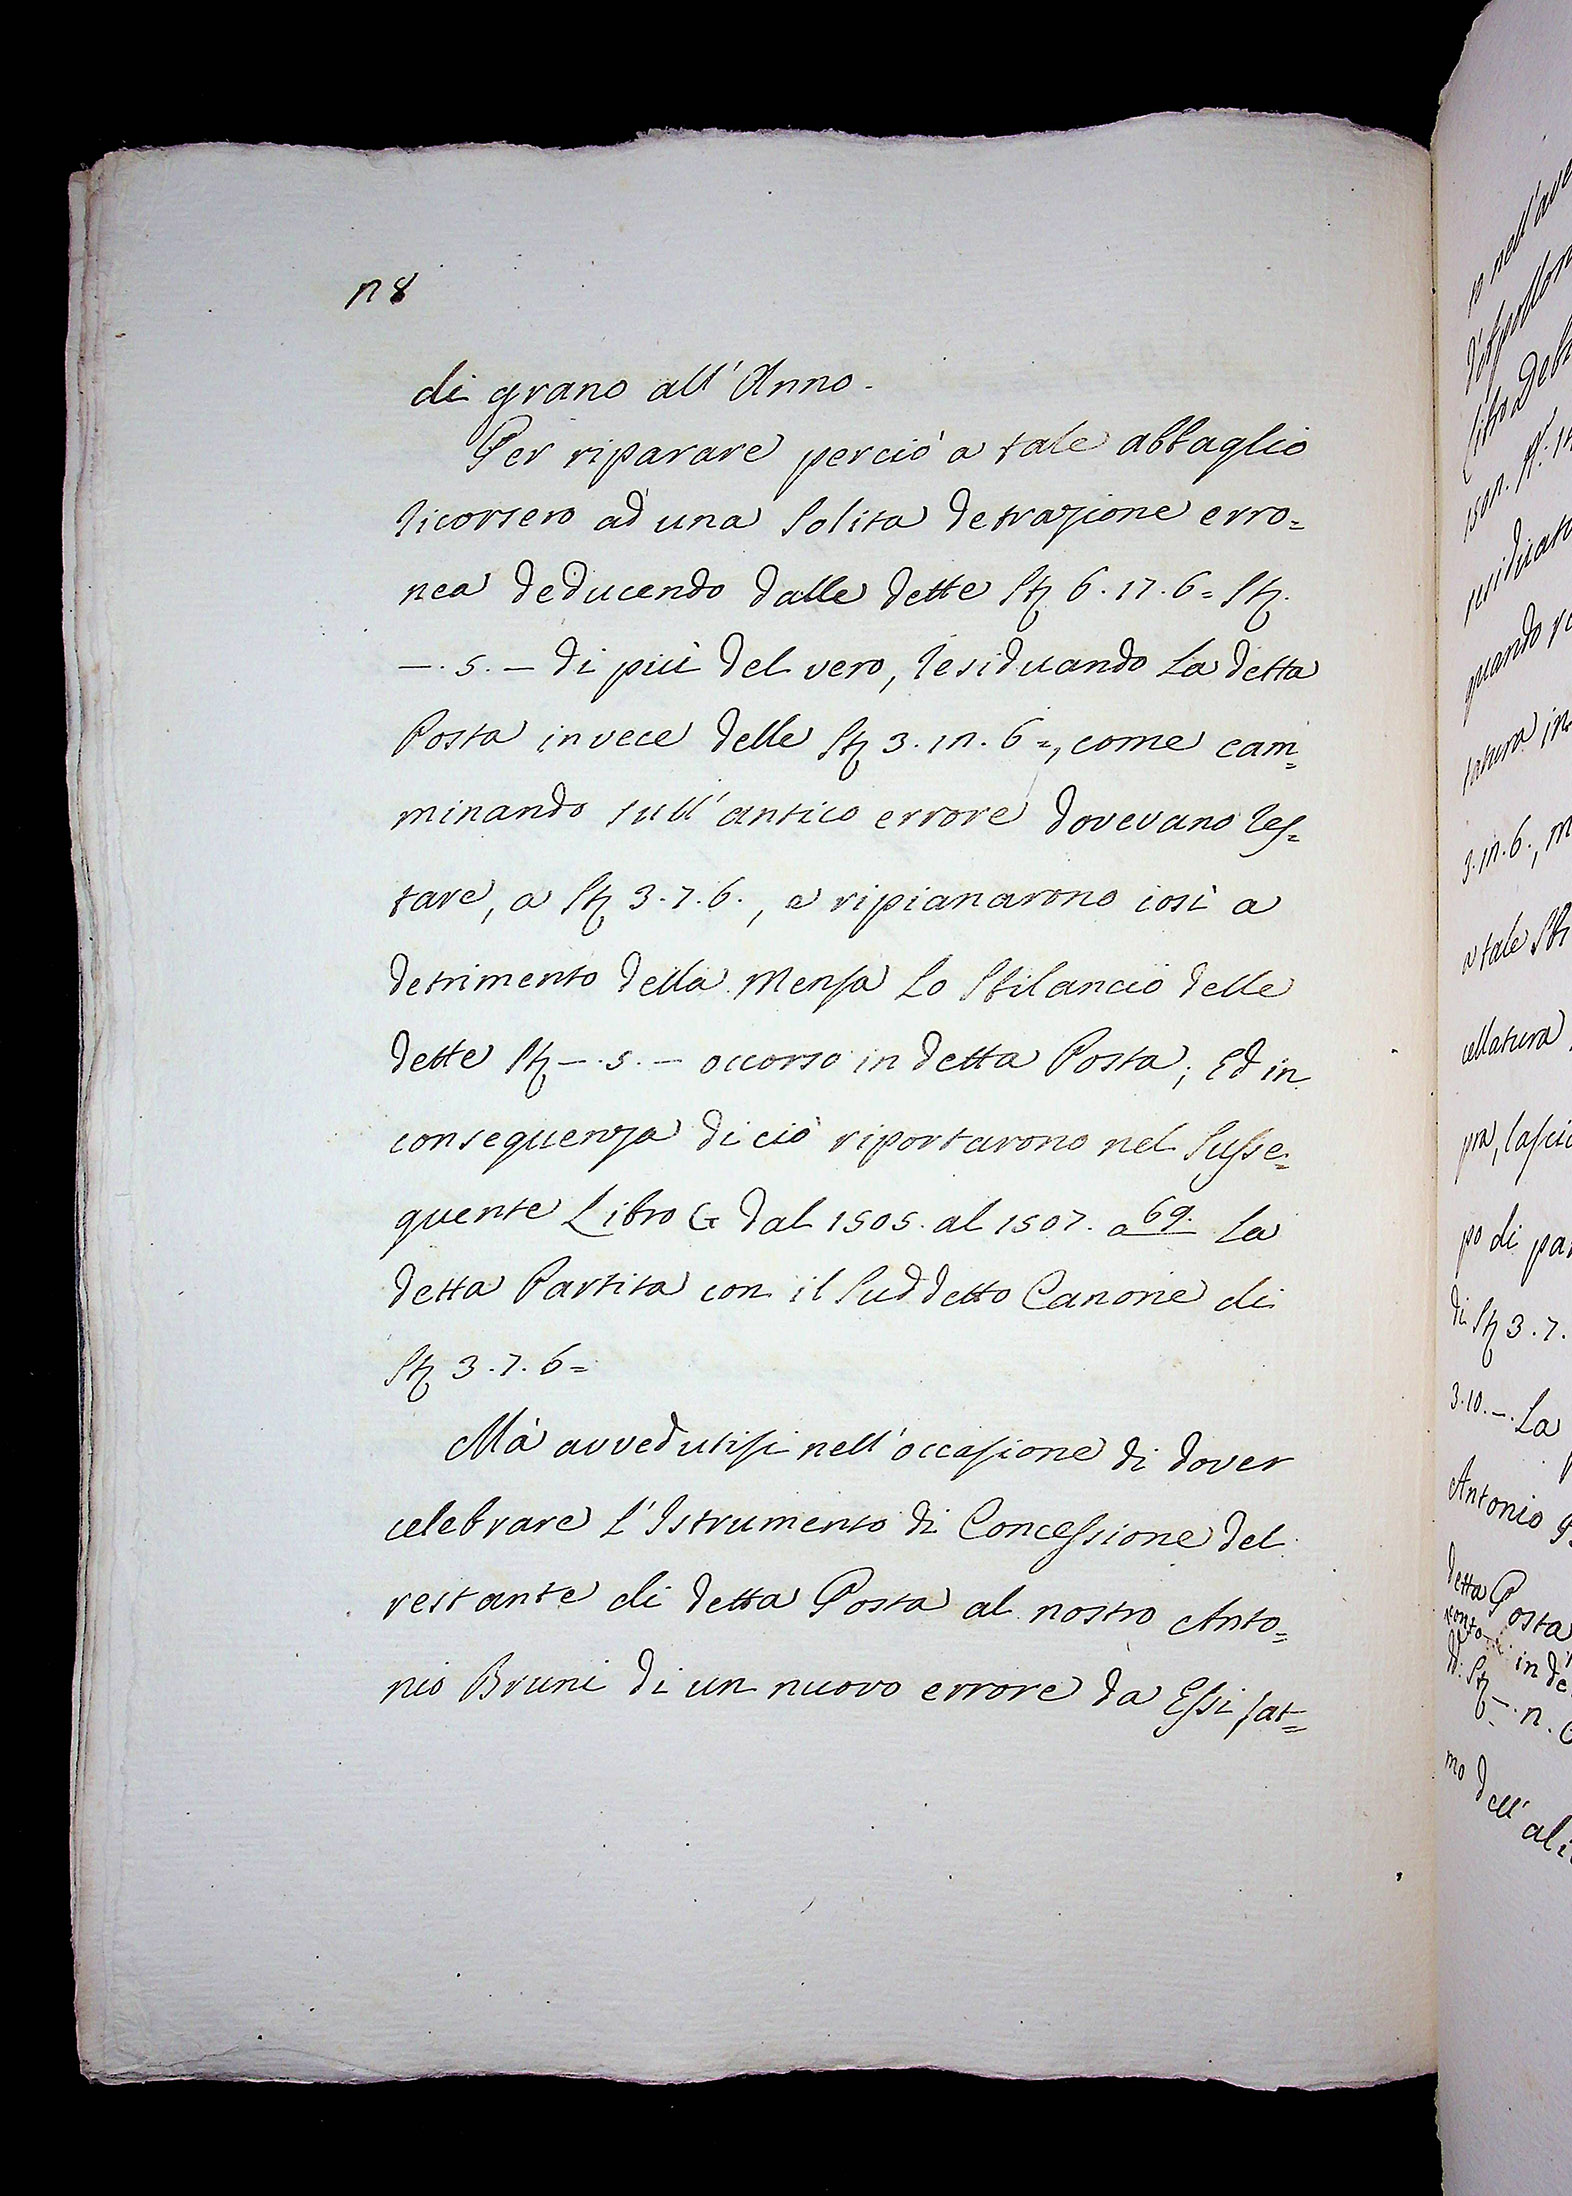 n8
di grano all'Anno.
Per riparare perciò a tale abbaglio
ricorsero ad una solita detrazione erro=
nea deducendo dalle dette St<sup></sup> 6.17.6= St.
—.5.— di più del vero, residuando la detta
Posta invece delle St 3.12.6=, come cam=
minando sull'antico errore dovevano res=
tare, a St 3.7.6., e ripianarono così a
detrimento della Mensa lo sbilancio delle
dette St —.5.— occorso in detta Posta; Ed in
consequenza di ciò riportarono nel susse=
quente Libro G dal 1505. al 1507. a 69. la
detta Partita con il suddetto Canone di
St 3.7.6=
Mà avvedutisi nell'occasione di dover
celebrare l'Istrumento di Concessione del
restante di detta Posta al nostro Anto=
nio Bruni di un nuovo errore da Essi fat=
quando
3.12.6., m
a tale St
cellatura
pra, lascia
po di pa
di St 3.7.
3.10.—. La
Antonio
detta Posta
conto in de
di St —.
mo dell'